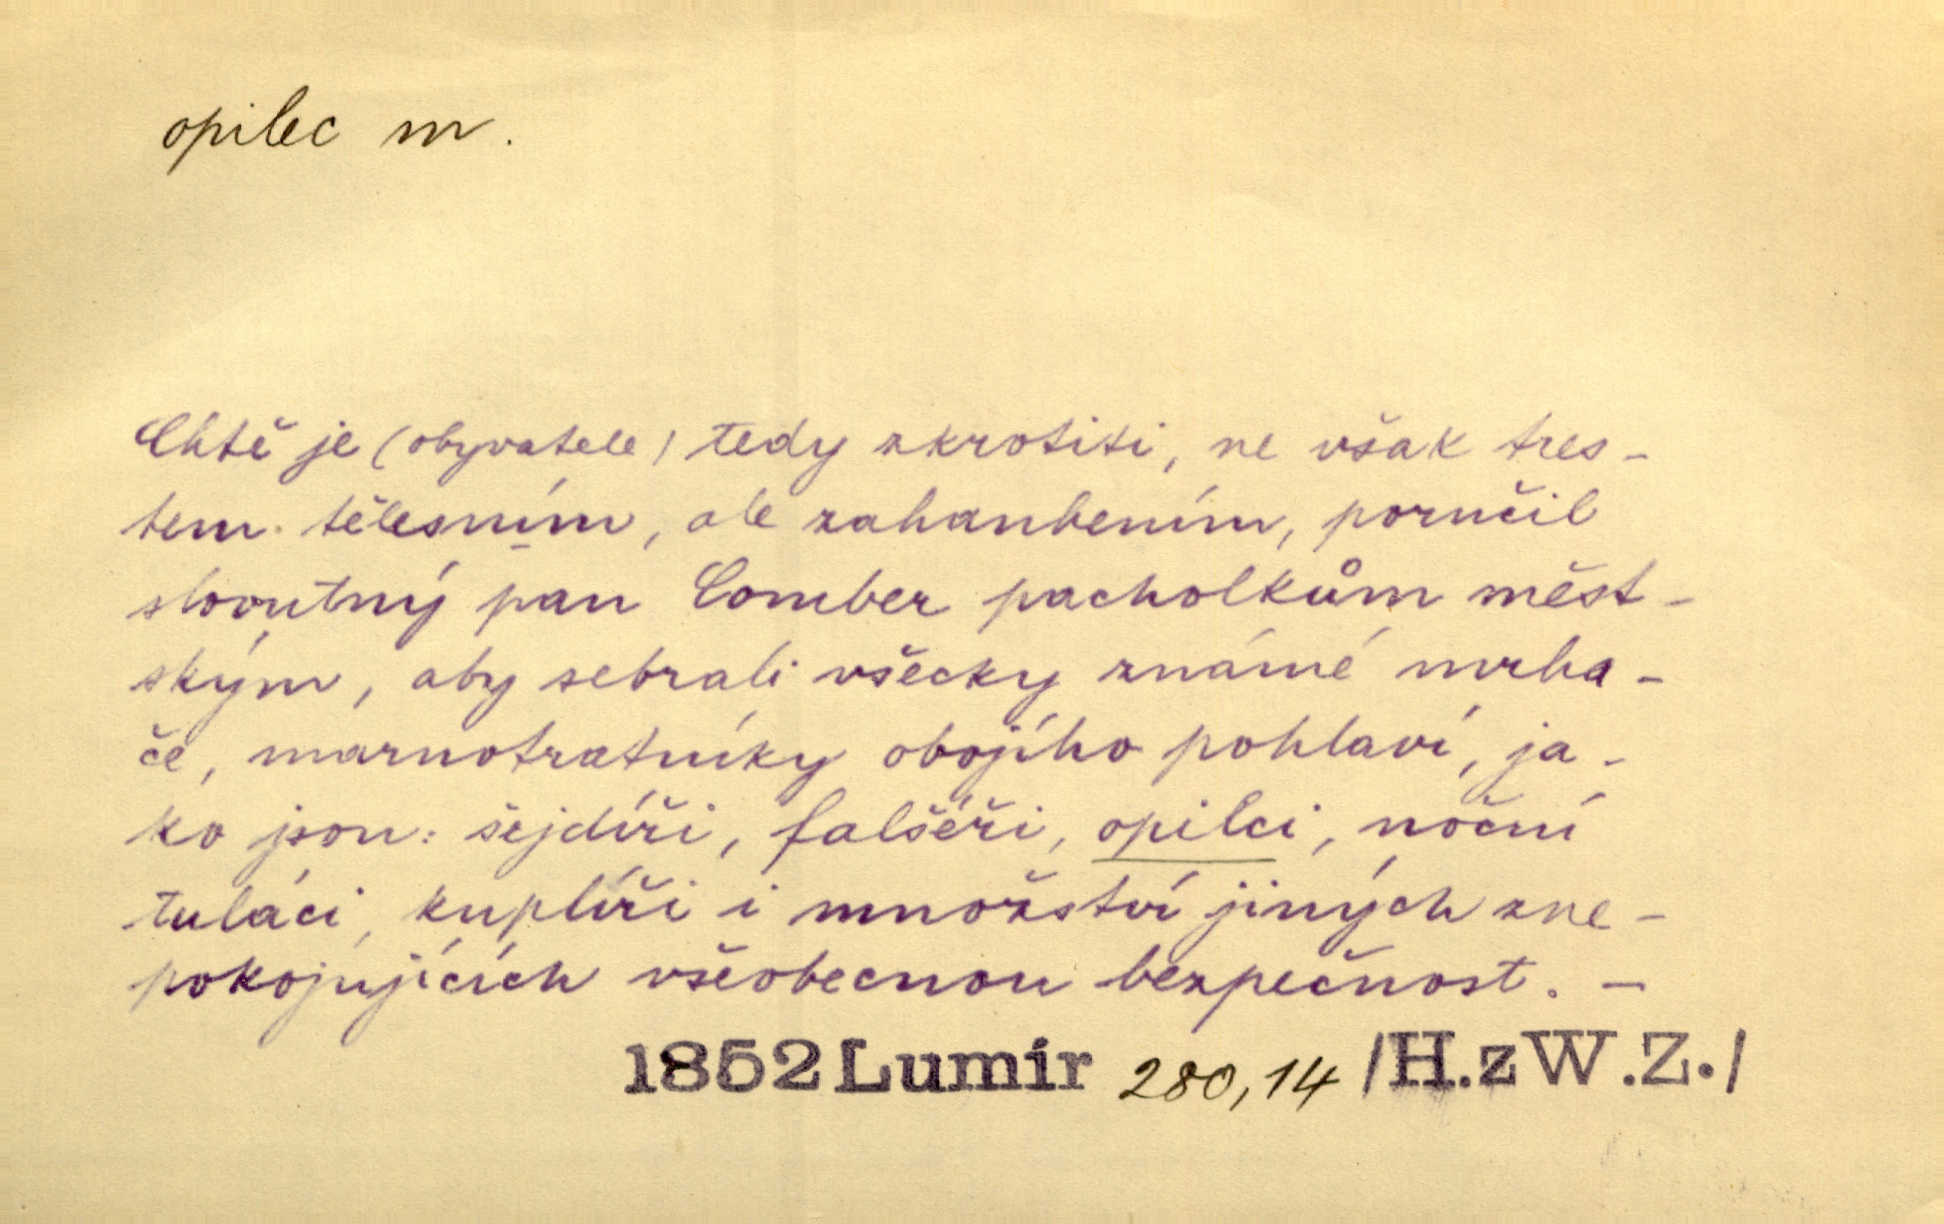 opilec m.
Chtě je (obyvatele) tedy zkrotiti, ne však tres-
tem tělesním, ale zahanbením, poručil
slovutný pan Comber pacholkům měst-
ským, aby sebrali všecky známé mrha-
če, marnotratníky obojího pohlaví, ja-
ko jsou: šejdíři, falšéři, opilci, noční
tuláci, kuplíři i množství jiných zne-
pokojujících všeobecnou bezpečnost. —
1852 Lumír 280,14 /H.z W.Z./